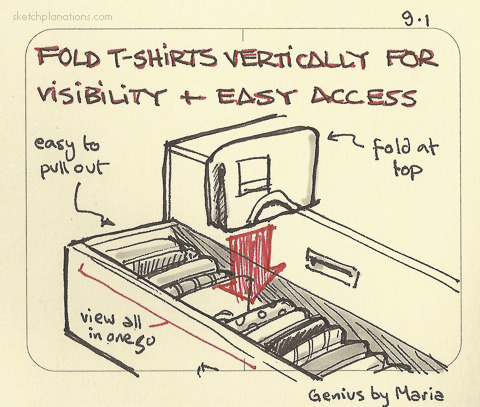 sketchplanations.com
9.1
FOLD T-SHIRTS VERTICALLY FOR
VISIBILITY + EASY ACCESS
easy to
pull out
fold at
top
view all
in one go
Genius by Maria